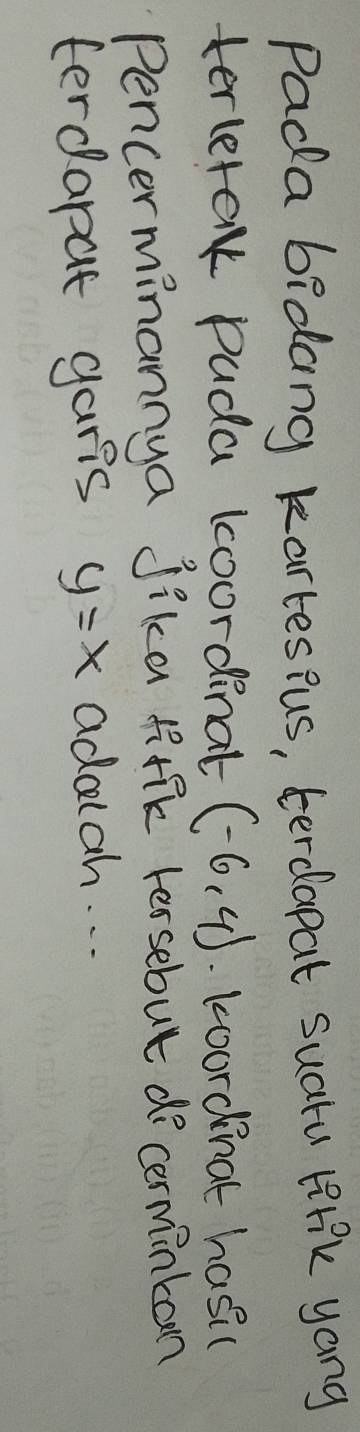 Pada bidang kartesius, terdapat suatu titik yang
terletak pada koordinat (-6,4). koordinat hasil
pencerminannya jika titik tersebut dicerminkan
terdapat garis y=x adalah...